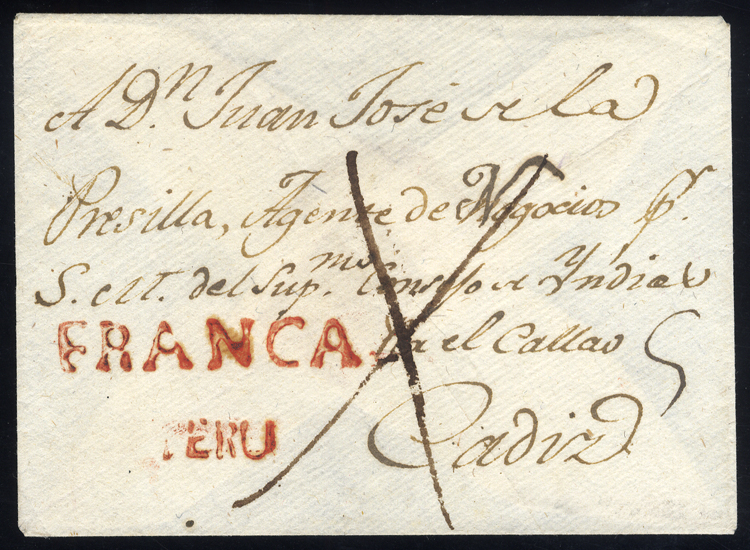 A D.n Juan José de la
Presilla, Agente de Negocios pr.
S. M. del Sup.mo Consejo de Yndias
FRANCA
el Callao
PERU
Cadiz